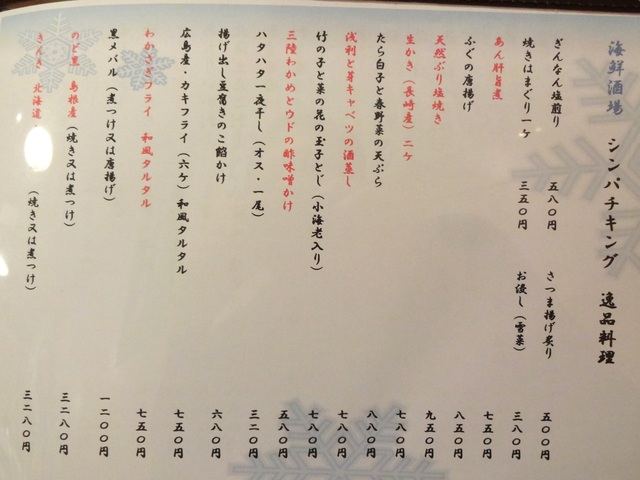 海鮮酒場 シンパチキング 逸品料理
ぎんなん塩煎り 五八〇円 さつま揚げ炙り 五〇〇円
焼きはまぐり一ケ 三五〇円 お浸し(雪菜) 三八〇円
あん肝旨煮 七五〇円
ふぐの唐揚げ 八五〇円
天然ぶり塩焼き 九五〇円
生かき(長崎産)二ケ 七八〇円
たら白子と春野菜の天ぷら 八八〇円
浅利と芽キャベツの酒蒸し 七八〇円
竹の子と菜の花の玉子とじ(小海老入り) 七八〇円
三陸わかめとウドの酢味噌かけ 五八〇円
ハタハタ一夜干し(オス・一尾) 三二〇円
揚げ出し豆腐きのこ餡かけ 六八〇円
広島産・カキフライ(六ケ)和風タルタル 七五〇円
わかさぎフライ 和風タルタル 七五〇円
黒メバル(煮つけ又は唐揚げ) 一二〇〇円
のど黒 島根産(焼き又は煮つけ) 三二八〇円
きんき 北海道 (焼き又は煮つけ) 三二八〇円